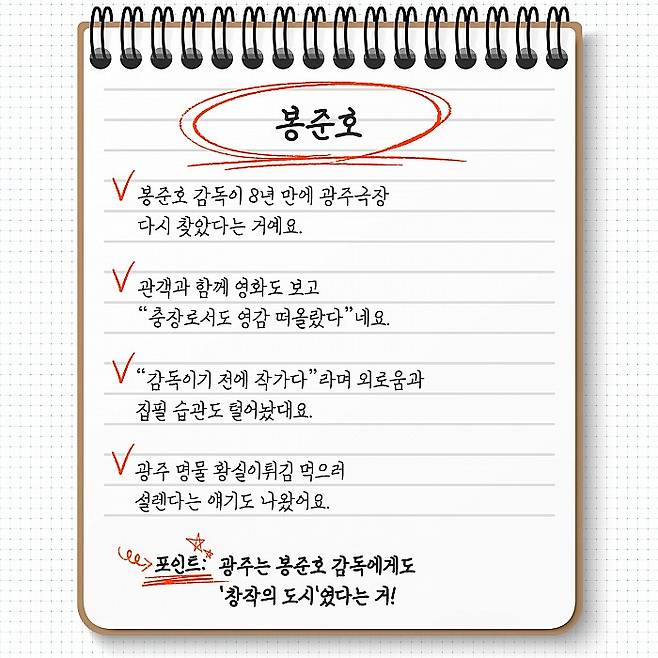 봉준호
봉준호 감독이 8년 만에 광주극장
다시 찾았다는 거예요.
관객과 함께 영화도 보고
“충장로서도 영감 떠올랐다”네요.
“감독이기 전에 작가다”라며 외로움과
집필 습관도 털어놨대요.
광주 명물 황실이튀김 먹으러
설렌다는 얘기도 나왔어요.
포인트: 광주는 봉준호 감독에게도
'창작의 도시'였다는 거!